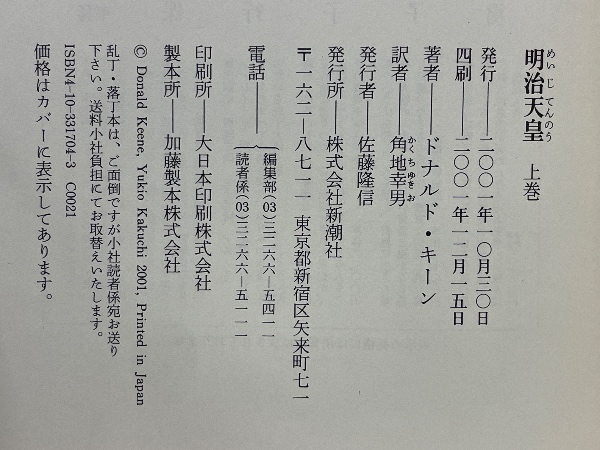 明治天皇 上巻
めいじてんのう
発行――二〇〇一年一〇月三〇日
四刷――二〇〇一年一二月一五日
著者――ドナルド・キーン
訳者――角地幸男
かくちゆきお
発行者――佐藤隆信
発行所――株式会社新潮社
〒一六二―八七一一 東京都新宿区矢来町七一
電話――編集部(03)三二六六―五四一一
読者係(03)三二六六―五一一一
印刷所――大日本印刷株式会社
製本所――加藤製本株式会社
© Donald Keene, Yukio Kakuchi 2001, Printed in Japan
乱丁・落丁本は、ご面倒ですが小社読者係宛お送り
下さい。送料小社負担にてお取替えいたします。
ISBN4-10-331704-3 C0021
価格はカバーに表示してあります。